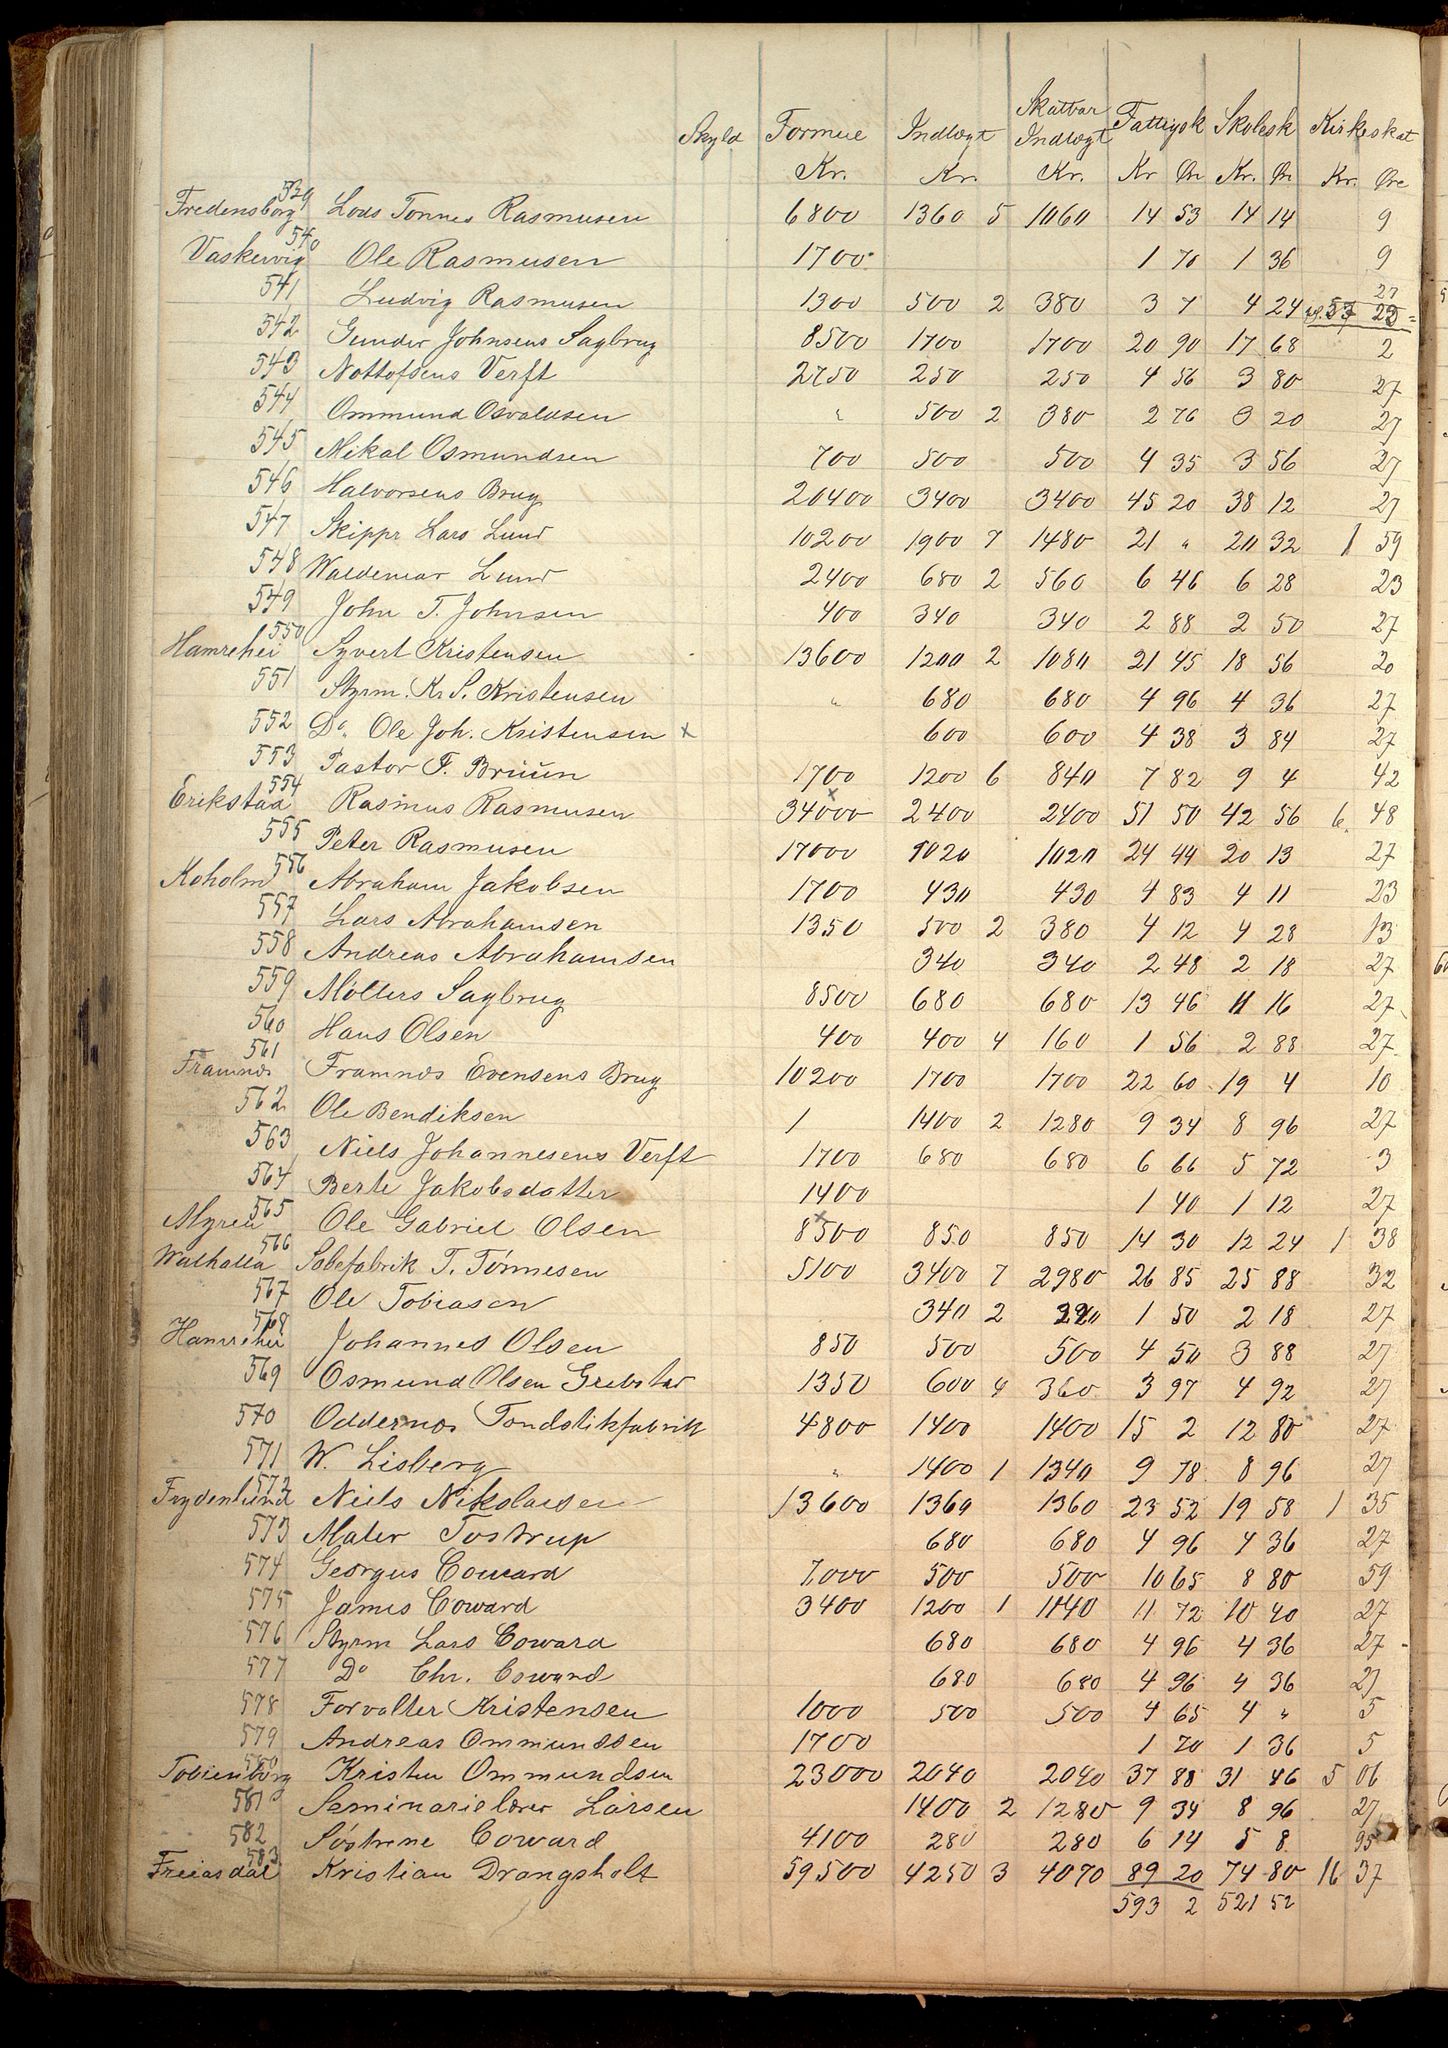 Skyld Formue Indtægt Skatbar Indtægt Fattigsk Skolesk Kirkeskat
Kr. Kr. Kr. Kr Øre Kr. Øre Kr. Øre
Fredensborg 539 Lods Tønnes Rasmusen 6800 1360 5 1060 14 53 14 14 9
Vaskervig 540 Ole Rasmusen 1700 1 70 1 36 9
541 Ludvig Rasmusen 1300 500 2 380 3 7 4 24 27
23
542 Gunder Johnsens Sagbrug 8500 1700 1700 20 90 17 68 2
543 Nottofsens Verft 2750 250 250 4 56 3 80 27
544 Ommund Osvaldsen " 500 2 380 2 76 3 20 27
545 Mikal Osmundsen 700 500 500 4 35 3 56 27
546 Halvorsens Brug 20400 3400 3400 45 20 38 12 27
547 Skippr Lars Lund 10200 1900 7 1480 21 " 20 32 1 59
548 Waldemar Lund 2400 680 2 560 6 46 6 28 23
549 John T. Johnsen 400 340 340 2 88 2 50 27
Hamrehei 550 Syvert Kristensen 13600 1200 2 1080 21 45 18 56 20
551 Styrm. Kr S. Kristensen " 680 680 4 96 4 36 27
552 Do. Ole Joh. Kristensen x 600 600 4 38 3 84 27
553 Pastor F. Brüün 1700 1200 6 840 7 82 9 4 42
Erikstad 554 Rasmus Rasmusen x 34000 2400 2400 51 50 42 56 6 48
555 Peter Rasmusen 17000 1020 1020 24 44 20 13 27
Koholm 556 Abraham Jakobsen 1700 430 430 4 83 4 11 23
557 Lars Abrahamsen 1350 500 2 380 4 12 4 28 13
558 Andreas Abrahamsen 340 340 2 48 2 18 27
559 Møllers Sagbrug 8500 680 680 13 46 11 16 27
560 Hans Olsen 400 400 4 160 1 56 2 88 27
Framnæs 561 Framnæs Evensens Brug 10200 1700 1700 22 60 19 4 10
562 Ole Bendiksen 1 1400 2 1280 9 34 8 96 27
563 Niels Johannesens Verft 1700 680 680 6 66 5 72 3
564 Berte Jakobsdatter 1400 1 40 1 12 27
Myren 565 Ole Gabriel Olsen x 8500 850 850 14 30 12 24 1 38
Walhalla 566 Sæbefabrik T. Tønnesen 5100 3400 7 2980 26 85 25 88 32
567 Ole Tobiasen 340 2 220 1 50 2 18 27
Hamrehei 568 Johannes Olsen 850 500 500 4 50 3 88 27
569 Osmund Olsen Grebstad 1350 600 4 360 3 97 4 92 27
570 Oddernes Tændstikfabrik 4800 1400 1400 15 2 12 80 27
571 W. Lisberg " 1400 1 1340 9 78 8 96 27
Frydenlund 572 Niels Nikolaisen 13600 1360 1360 23 52 19 58 1 35
573 Maler Tostrup 680 680 4 96 4 36 27
574 Georgus Coward 7000 500 500 10 65 8 80 59
575 James Coward 3400 1200 1 1140 11 72 10 40 27
576 Styrm Lars Coward 680 680 4 96 4 36 27
577 Do Chr. Coward 680 680 4 96 4 36 27
578 Forvalter Kristensen 1000 500 500 4 65 4 " 5
579 Andreas Ommundsen 1700 1 70 1 36 5
Tobienborg 580 Kristen Ommundsen 23000 2040 2040 37 88 31 46 5 06
581 Seminarielærer Larsen 1400 2 1280 9 34 8 96 27
582 Søstrene Coward 4100 280 280 6 14 5 8 95
Freiasdal 583 Kristian Drangsholt 59500 4250 3 4070 89 20 74 80 16 37
593 2 521 52